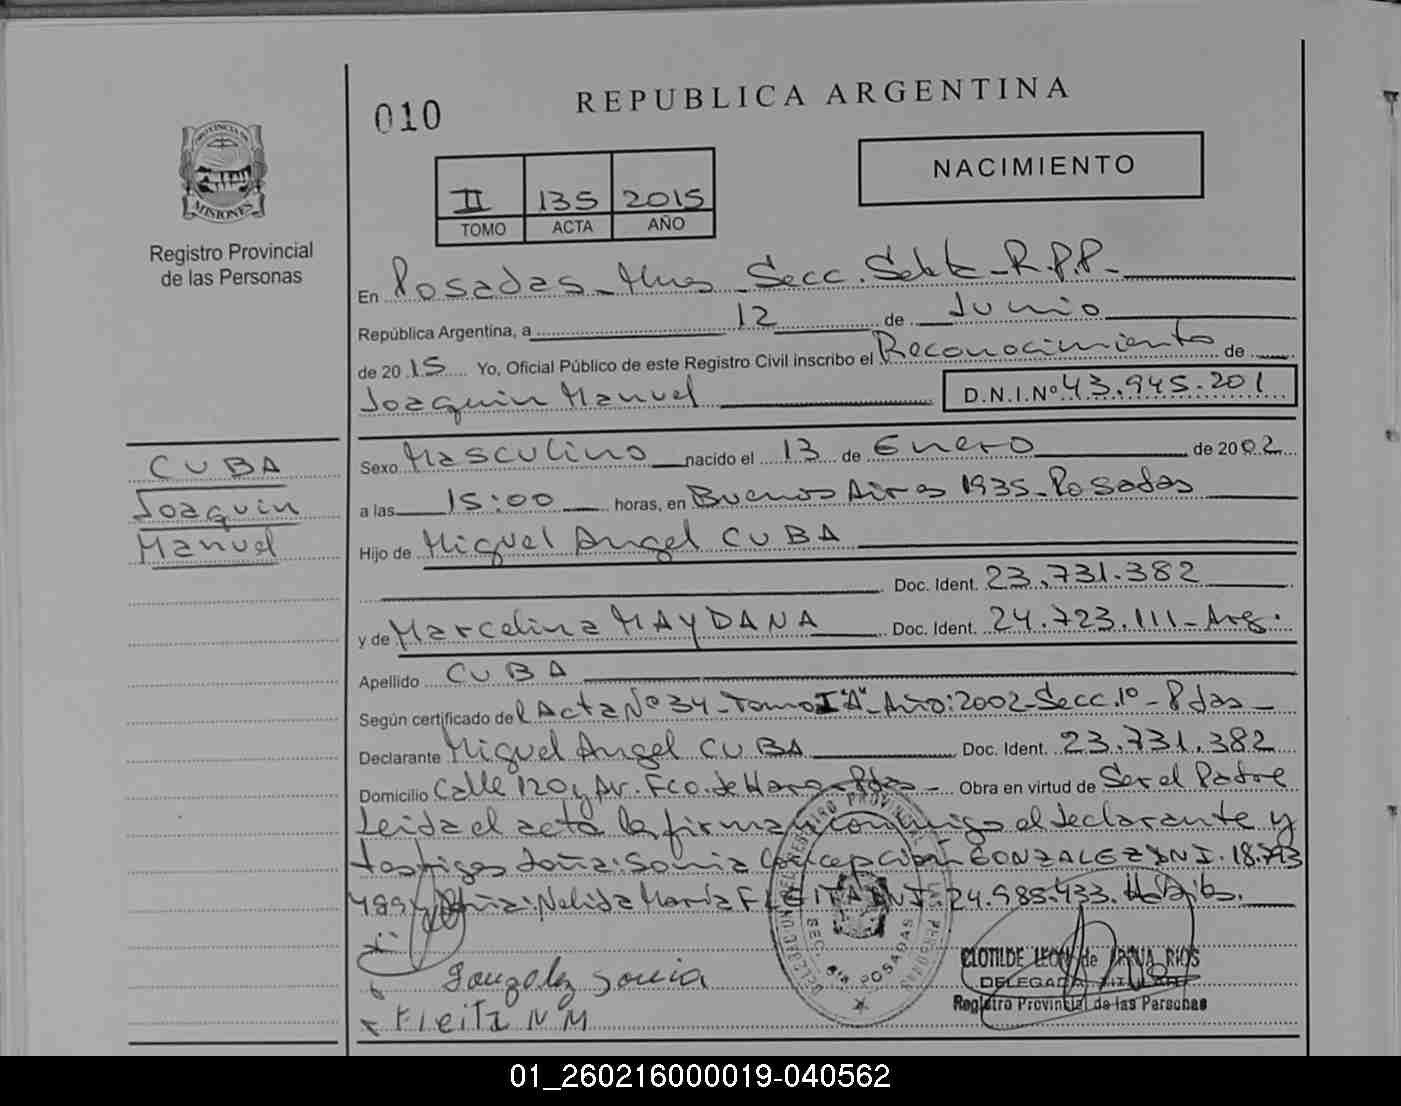 010
REPUBLICA ARGENTINA
NACIMIENTO
II 135 2015
TOMO ACTA AÑO
PROVINCIA DE
MISIONES
Registro Provincial
de las Personas
En Posadas - Mnes - Secc. R.P.P.-
República Argentina, a 12 de Junio
de 2015 Yo, Oficial Público de este Registro Civil inscribo el Reconocimiento de
Joaquin Manuel D.N.I.Nº 43.945.201
CUBA
Joaquin
Manuel
Sexo Masculino nacido el 13 de Enero de 2002
a las 15:00 horas, en Buenos Aires 1935 - Posadas
Hijo de Miguel Angel CUBA
Doc. Ident. 23.731.382
y de Marcelina MAYDANA Doc. Ident. 24.723.111 - Arg.
Apellido CUBA
Según certificado del Acta Nº 34 - Tomo I "A" - Año: 2002 - Secc. 1º - Pdas -
Declarante Miguel Angel CUBA Doc. Ident. 23.731.382
Domicilio Calle 120 y Av. Fco. de Haro - Pdas - Obra en virtud de Ser el Padre
Leida el acta la firma conmigo el declarante y
testigos doña: Sonia Concepcion GONZALEZ DNI. 18.793
489 y doña: Nelida María FLEITA DNI. 24.985.433.
Gonzalez Sonia
Fleita N M
SEC. POSADAS
CLOTILDE LEON de RIOS
DELEGADA TITULAR
Registro Provincial de las Personas
01_260216000019-040562